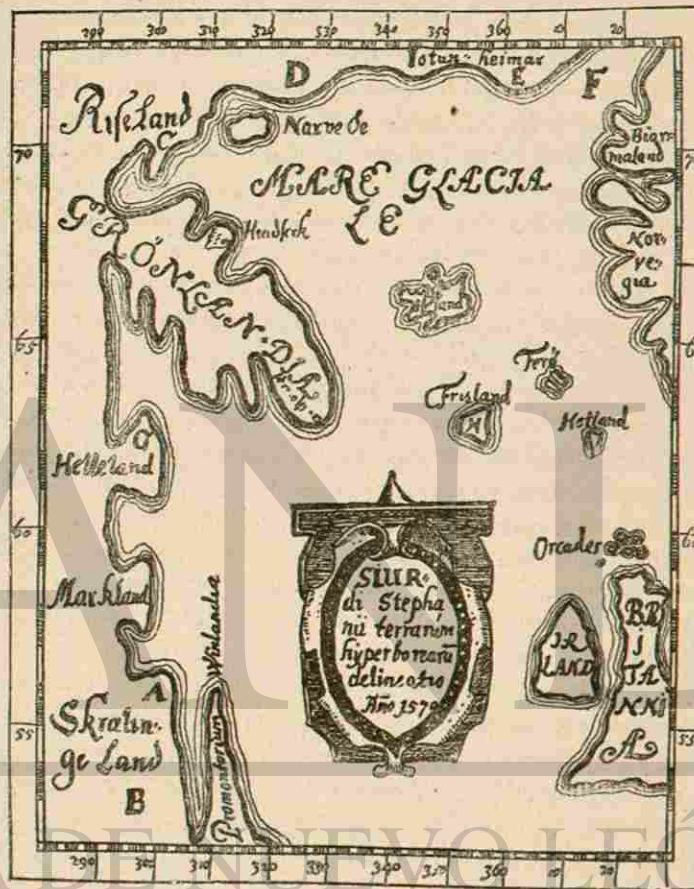 290 300 310 320 330 340 350 360 10 20
D
Iotun-heimar
E
F
Riseland
C
Narve Oe
Biar
maland
70
7
MARE GLACIA
LE
GRÖNLANDIÆ
Hvidserk
Nor
ve-
gia
65
6
Ferö
Frisland
Hetland
Helleland
60
6
Orcades
Markland
Winlandiæ
Promontorium
SIUR-
di Stepha
nii terrarum
hyperborearū
delineatio
Año 1570
IR
LAND
BR
I
TA
NNI
A
A
Skralin-
ge Land
B
55
55
290 300 310 320 330 340 350 360 10 20
ANL
DE NUEVO LEÓ